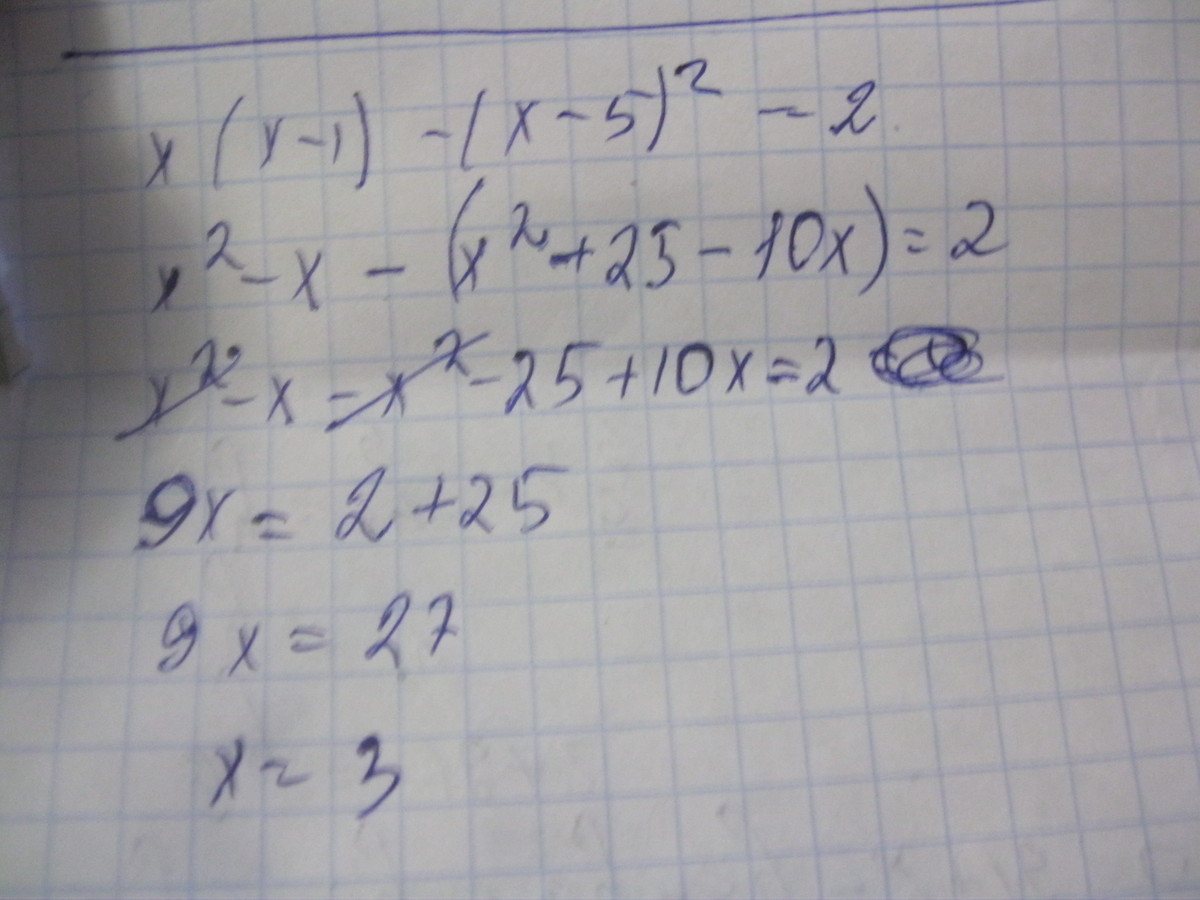 x(x-1) - (x-5)² = 2
x² - x - (x² + 25 - 10x) = 2
x² - x - x² - 25 + 10x = 2
9x = 2 + 25
9x = 27
x = 3